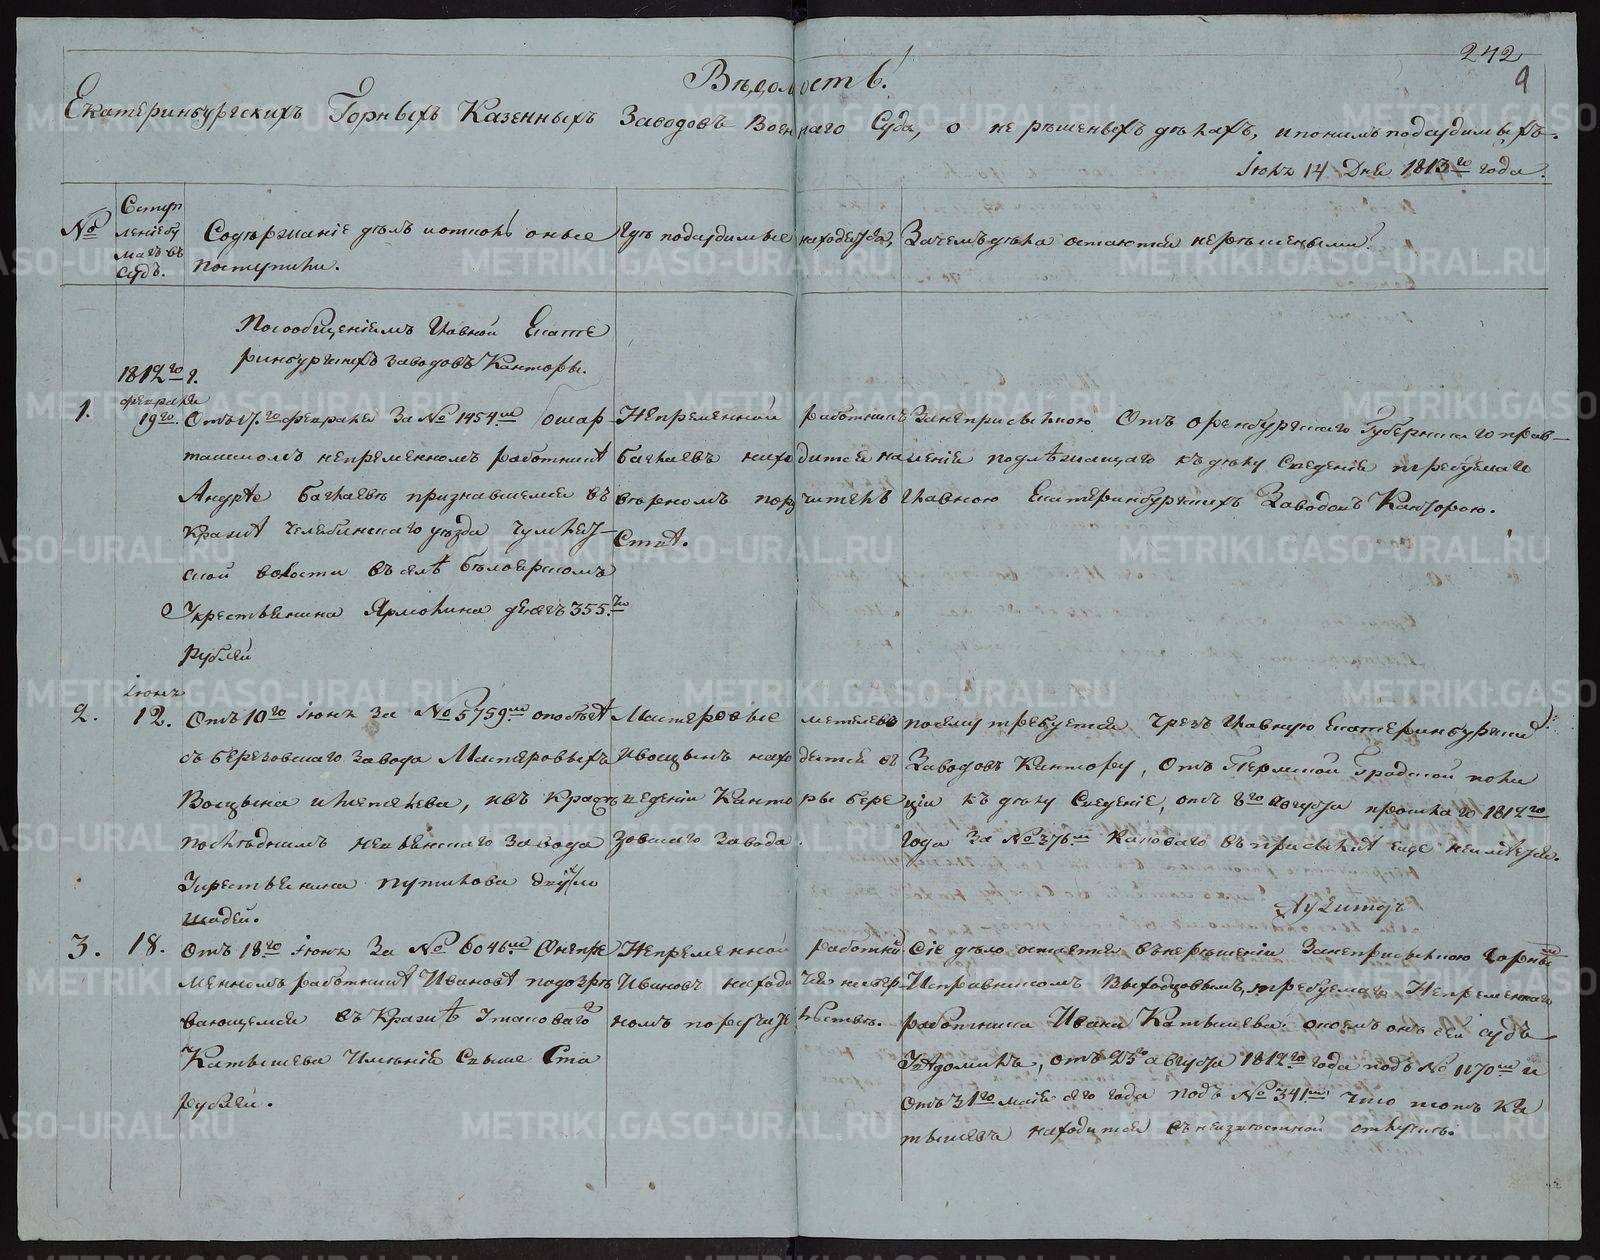 242
9
Вѣдомость
Екатеринбургскихъ Горныхъ Казенныхъ Заводовъ Военнаго Суда, о не рѣшеныхъ дѣлахъ, и по нимъ подсудимыхъ.
Іюня 14 Дня 1813го года.
№
Вступленіе бумагъ въ судъ.
Содержаніе дѣлъ и отколь оные поступили.
Гдѣ подсудимые находятся,
Зачемъ дѣла остаются нерѣшеными?
По сообщеніемъ Главной Екате
ринбургскихъ заводовъ Канторы.
1812го г.
февраля
1. 19го.
Отъ 17го февраля За № 1454м о шар
ташскомъ непременномъ работникѣ
Андрѣе Багаевѣ признавшемся въ
Кражѣ Челябинскаго уѣзда
ской волости въ селѣ Белоярскомъ
У крестьянина Ярмолина денегъ 355.ти
рублей
Непременный работникъ
Багаевъ находится на
вѣрномъ поручитель
ствѣ.
За неприсылкою Отъ Оренбургскаго Губернскаго прав-
ленія подлѣжащаго къ дѣлу Сведенія требуемаго
Главною Екатеринбургскихъ Заводовъ Канторою.
Іюня
2. 12.
Отъ 10го Іюня За № 5759м о побѣгѣ
съ березовскаго завода Мастеровыхъ
и Метелева, и въ кражѣ
последнимъ Невьянскаго Завода
У крестьянина Путилова двухъ ло
шадей.
Мастеровые Метелевъ
находятся въ
веденіи Канторы Бере
зовскаго завода.
по сему требуется чрезъ Главную Екатеринбургскихъ
Заводовъ Кантору, Отъ Пермской Градской поли
ціи къ дѣлу Сведеніе, отъ 8го Августа прошлаго 1812го
Года за № 376м Каковаго въ присылкѣ еще неимѣется.
Аудиторъ
3. 18.
Отъ 18го Іюня За № 6046м О непре
менномъ работникѣ Ивановѣ подозрѣ
вающемся въ Кражѣ У таковаго
Катышева Именія Свыше Ста
рублей.
Непременной работни
Ивановъ находи
ся на вер
номъ поручительствѣ.
Сіе дѣло остается въ нерѣшеніи За неприсылкою Горнымъ
Исправникомъ Выходцовымъ, требуемаго Непременнаго
работника Ивана Катышева. о коемъ онъ сей судъ
Увѣдомилъ, отъ 25го августа 1812го года подъ № 1170м и
Отъ 31го маія сего года подъ № 341м Что тотъ Ка
тышевъ находится въ неизвѣстной отлучкѣ.